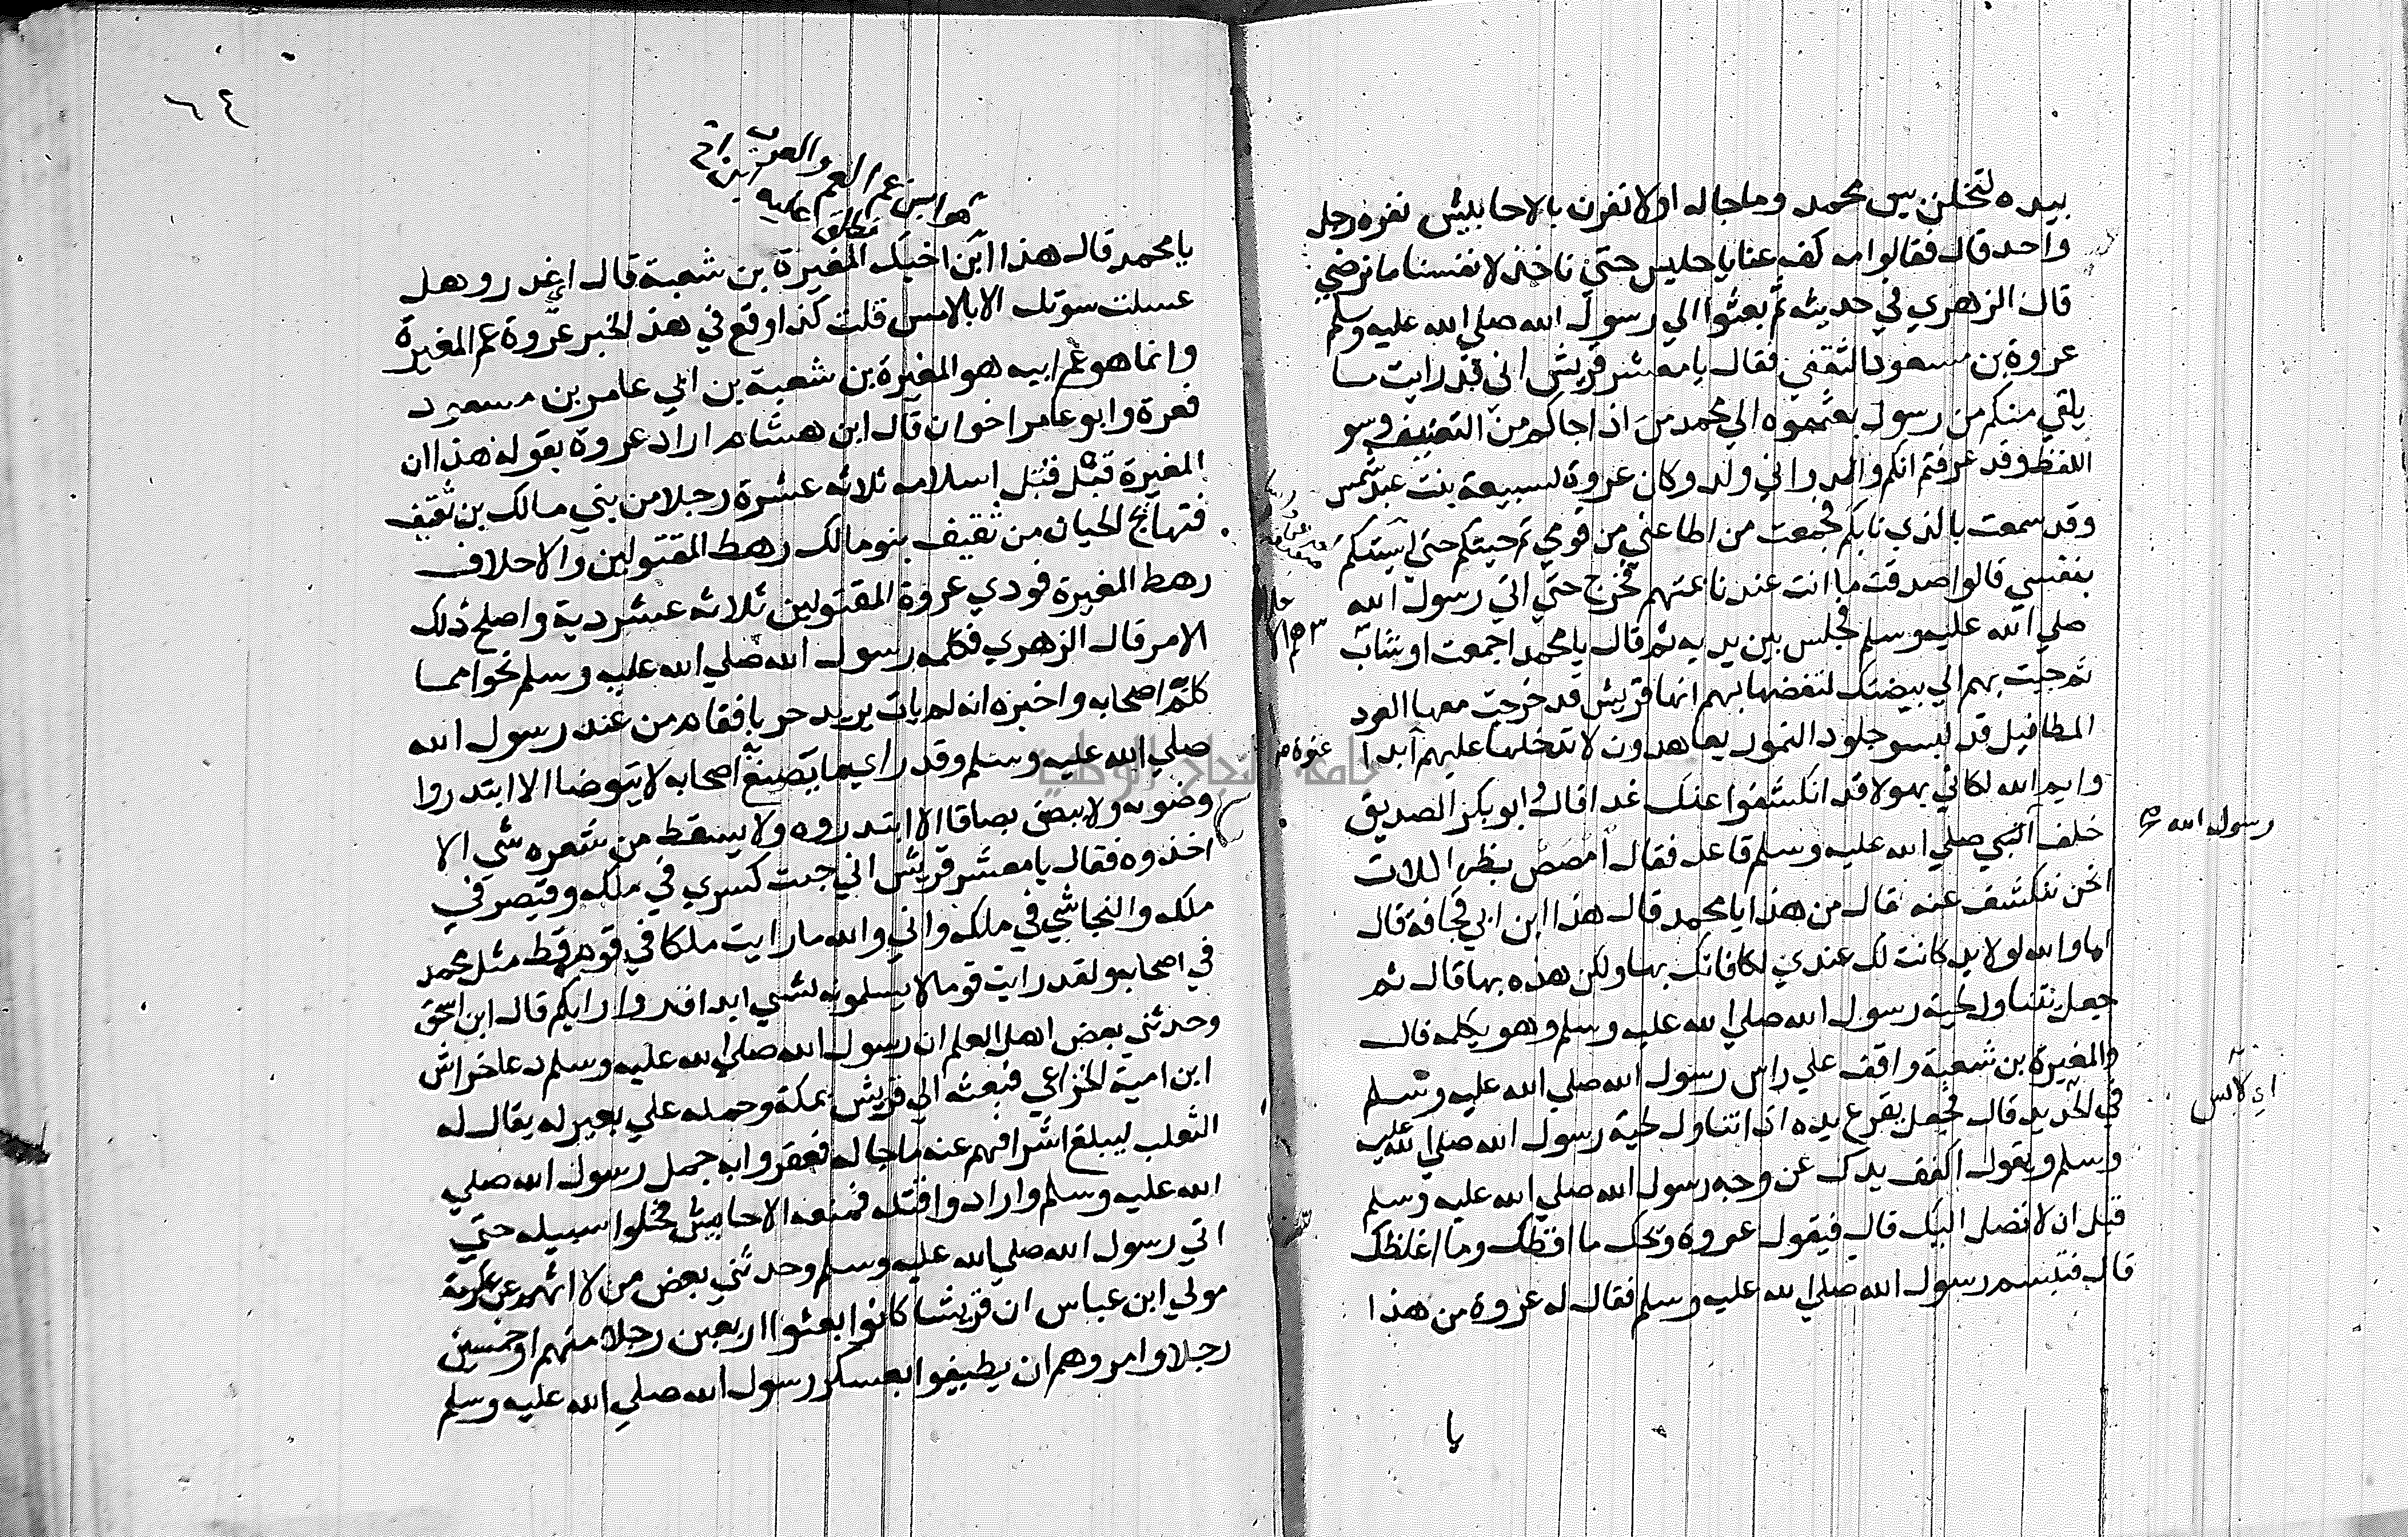 بيده لتخلن بين محمد وما جا له او لانفرن بالاحابيش نفرة رجل
واحد قال فقالوا مه كف عنا يا حليس حتي ناخذ لانفسنا ما نرضي
قال الزهري في حديثه ثم بعثوا الي رسول الله صلي الله عليه وسلم
عروة بن مسعود الثقفي فقال يا معشر قريش اني قد رايت ما
يلقي منكم من رسول بعثتموه الي محمد من اذا جاكم من التعنيف وسو
اللفظ وقد عرفتم انكم والد واني ولد وكان عروة لسبيعة بنت عبد شمس
وقد سمعت بالذي نابكم فجمعت من اطاعني من قومي ثم جيتكم حتي آسيتكم
بنفسي قالوا صدقت ما انت عندنا بمتهم فخرج حتي اتي رسول الله
صلي الله عليه وسلم فجلس بين يديه ثم قال يا محمد اجمعت اوشاب
ثم جيت بهم الي بيضتك لتفضها بهم انها قريش قد خرجت معها العوذ
المطافيل قد لبسو جلود النمور يعاهدون لا تدخلها عليهم ابدا
عنوة
وايم الله لكاني بهولا قد انكشفوا عنك غدا قال وابو بكر الصديق
خلف النبي صلي الله عليه وسلم قاعد فقال امصص بظر اللات
رسول الله
انحن ننكشف عنه قال من هذا يا محمد قال هذا ابن ابي قحافة قال
اما والله لولا يد كانت لك عندي لكافاتك بها ولكن هذه بها قال ثم
جعل يتناول لحية رسول الله صلي الله عليه وسلم وهو يكلمه قال
والمغيرة بن شعبة واقف علي راس رسول الله صلي الله عليه وسلم
اي لابس
في الحديد قال فجعل يقرع يده اذا تناول لحية رسول الله صلي الله عليه
وسلم ويقول اكفف يدك عن وجه رسول الله صلي الله عليه وسلم
قبل ان لا تصل اليك قال فيقول عروة ويحك ما افظك وما اغلظك
قال فتبسم رسول الله صلي الله عليه وسلم فقال له عروة من هذا
يا
٦٤
هو ابن عم العم والعرب
يا محمد قال هذا ابن اخيك المغيرة بن شعبة قال اي غدر وهل
غسلت سوتك الا بالامس قلت كذا وقع في هذا الخبر عروة عم المغيرة
وانما هو عم ابيه هو المغيرة بن شعبة بن ابي عامر بن مسعود
فعروة وابو عامر اخوان قال ابن هشام اراد عروة بقوله هذا ان
المغيرة قتل قبل اسلامه ثلاثه عشرة رجلا من بني مالك بن ثقيف
فتهايج الحيان من ثقيف بنو مالك رهط المقتولين والاحلاف
رهط المغيرة فودي عروة المقتولين ثلاثه عشر دية واصلح ذلك
الامر قال الزهري فكلمه رسول الله صلي الله عليه وسلم نحوا مما
كلم اصحابه واخبره انه لم يات يريد حربا فقام من عند رسول الله
صلي الله عليه وسلم وقد راي ما يصنع اصحابه لا يتوضا الا ابتدروا
وضوه ولا يبصق بصاقا الا ابتدروه ولا يسقط من شعره شي الا
اخذوه فقال يا معشر قريش اني جيت كسري في ملكه وقيصر في
ملكه والنجاشي في ملكه واني والله ما رايت ملكا في قوم قط مثل محمد
في اصحابه ولقد رايت قوما لا يسلمونه لشي ابدا فروا رايكم قال ابن اسحق
وحدثني بعض اهل العلم ان رسول الله صلي الله عليه وسلم دعا خراش
ابن امية الخزاعي فبعثه الي قريش بمكة وحمله علي بعير له يقال له
الثعلب ليبلغ اشرافهم عنه ما جا له فعقروا به جمل رسول الله صلي
الله عليه وسلم وارادوا قتله فمنعه الاحابيش فخلوا سبيله حتي
اتي رسول الله صلي الله عليه وسلم وحدثني بعض من لا اتهم عن عكرمة
مولي ابن عباس ان قريشا كانوا بعثوا اربعين رجلا منهم او خمسين
رجلا وامروهم ان يطيفوا بعسكر رسول الله صلي الله عليه وسلم
جامعة النجاح الوطنية